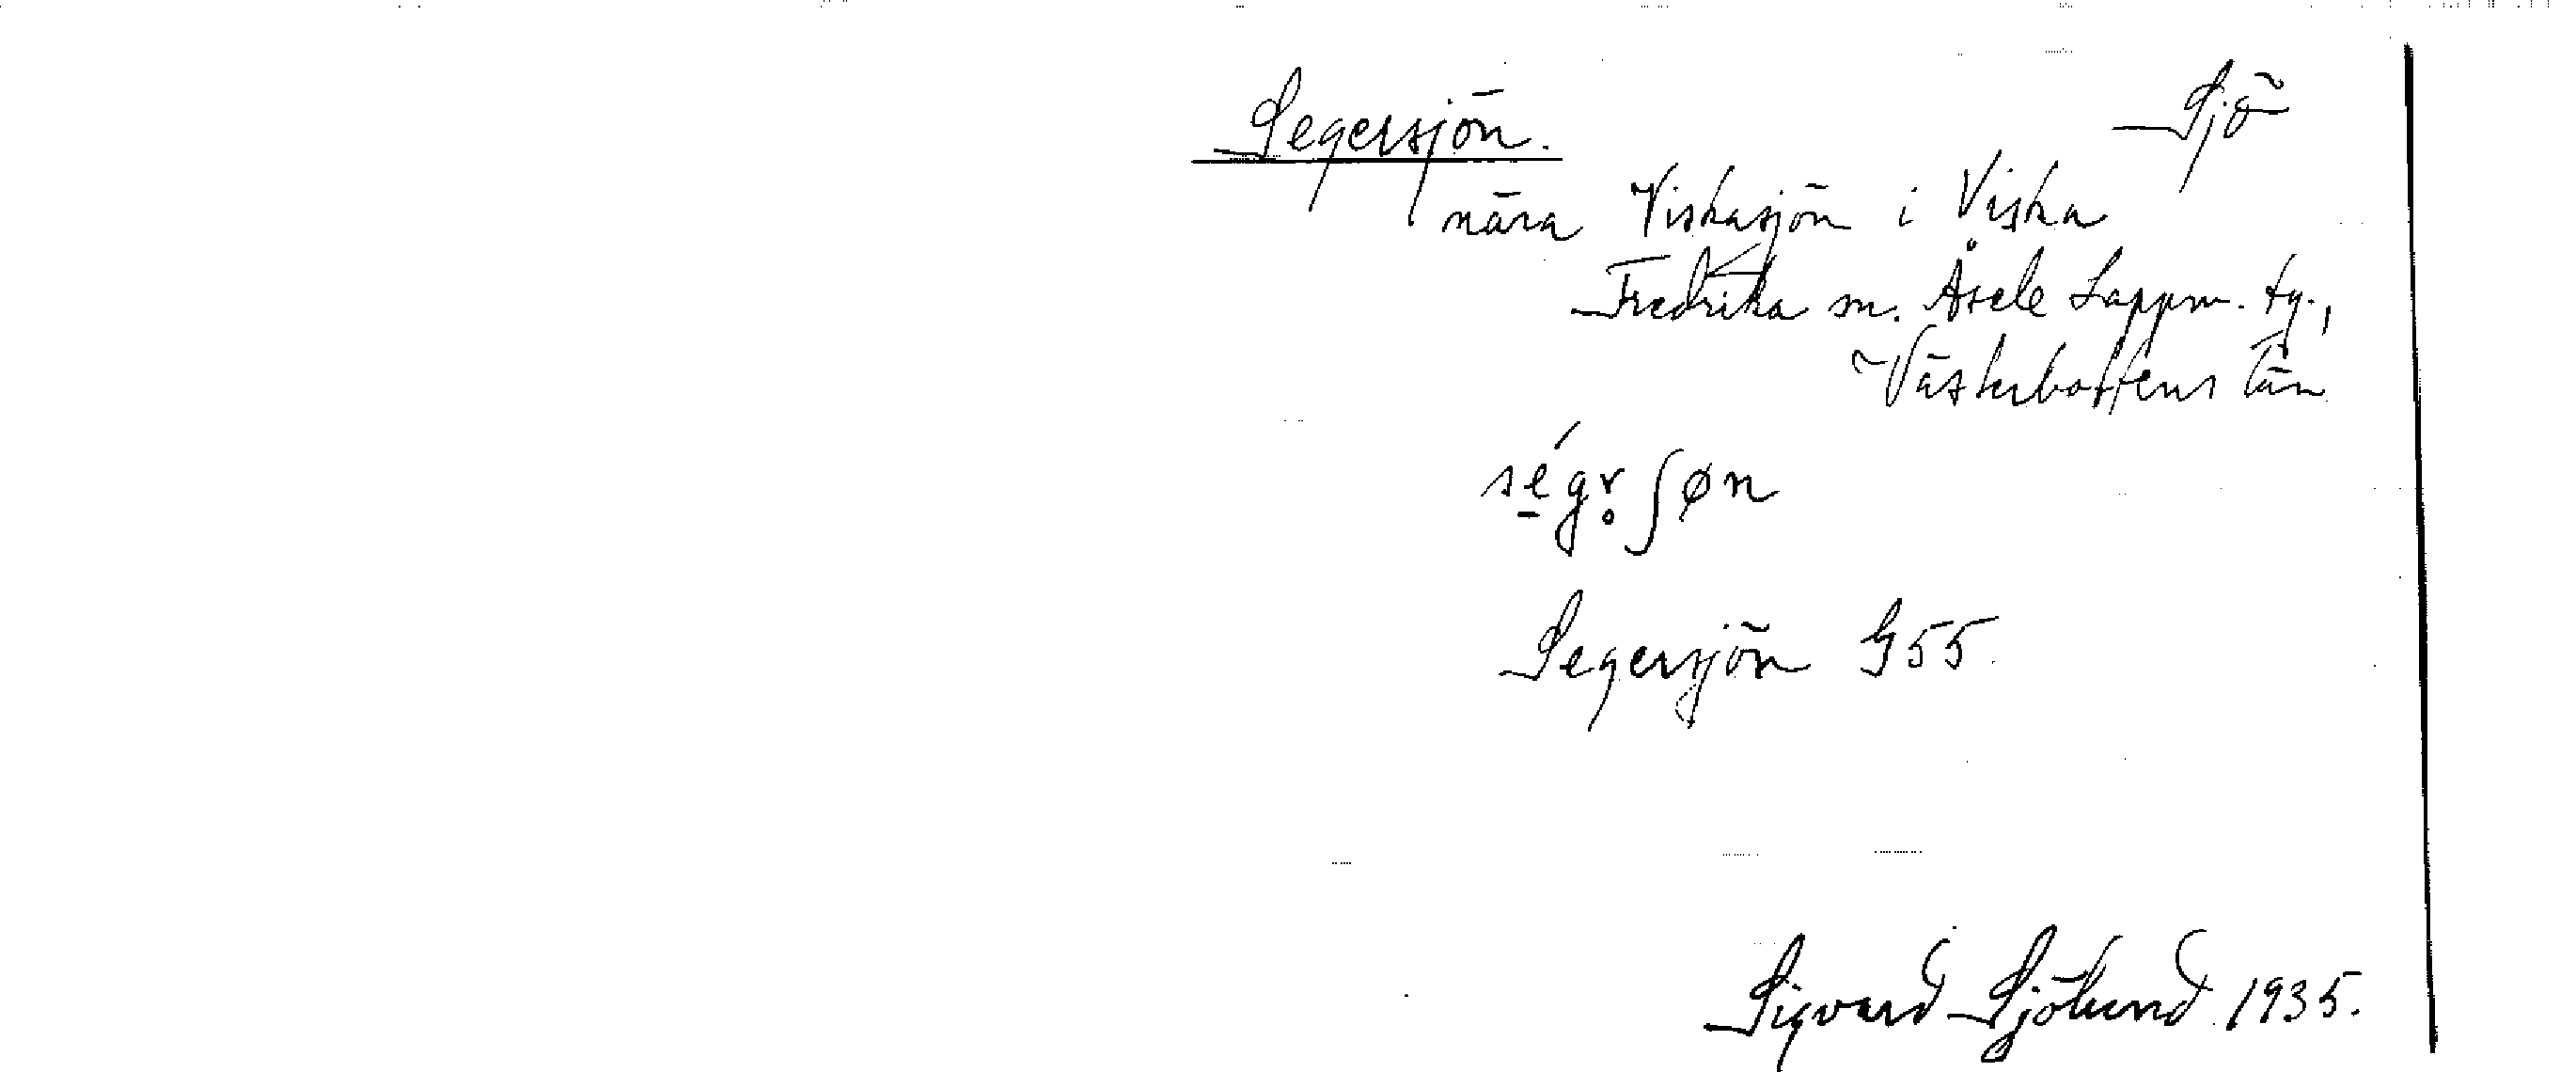 Segersjön. Sjö
nära Viskasjön i Viska
Fredrika sn. Åsele Lappm. tg.,
Västerbottens län
sé̱gr̥ ʃøn
Segersjön G55.
Sigvard Sjölund 1935.